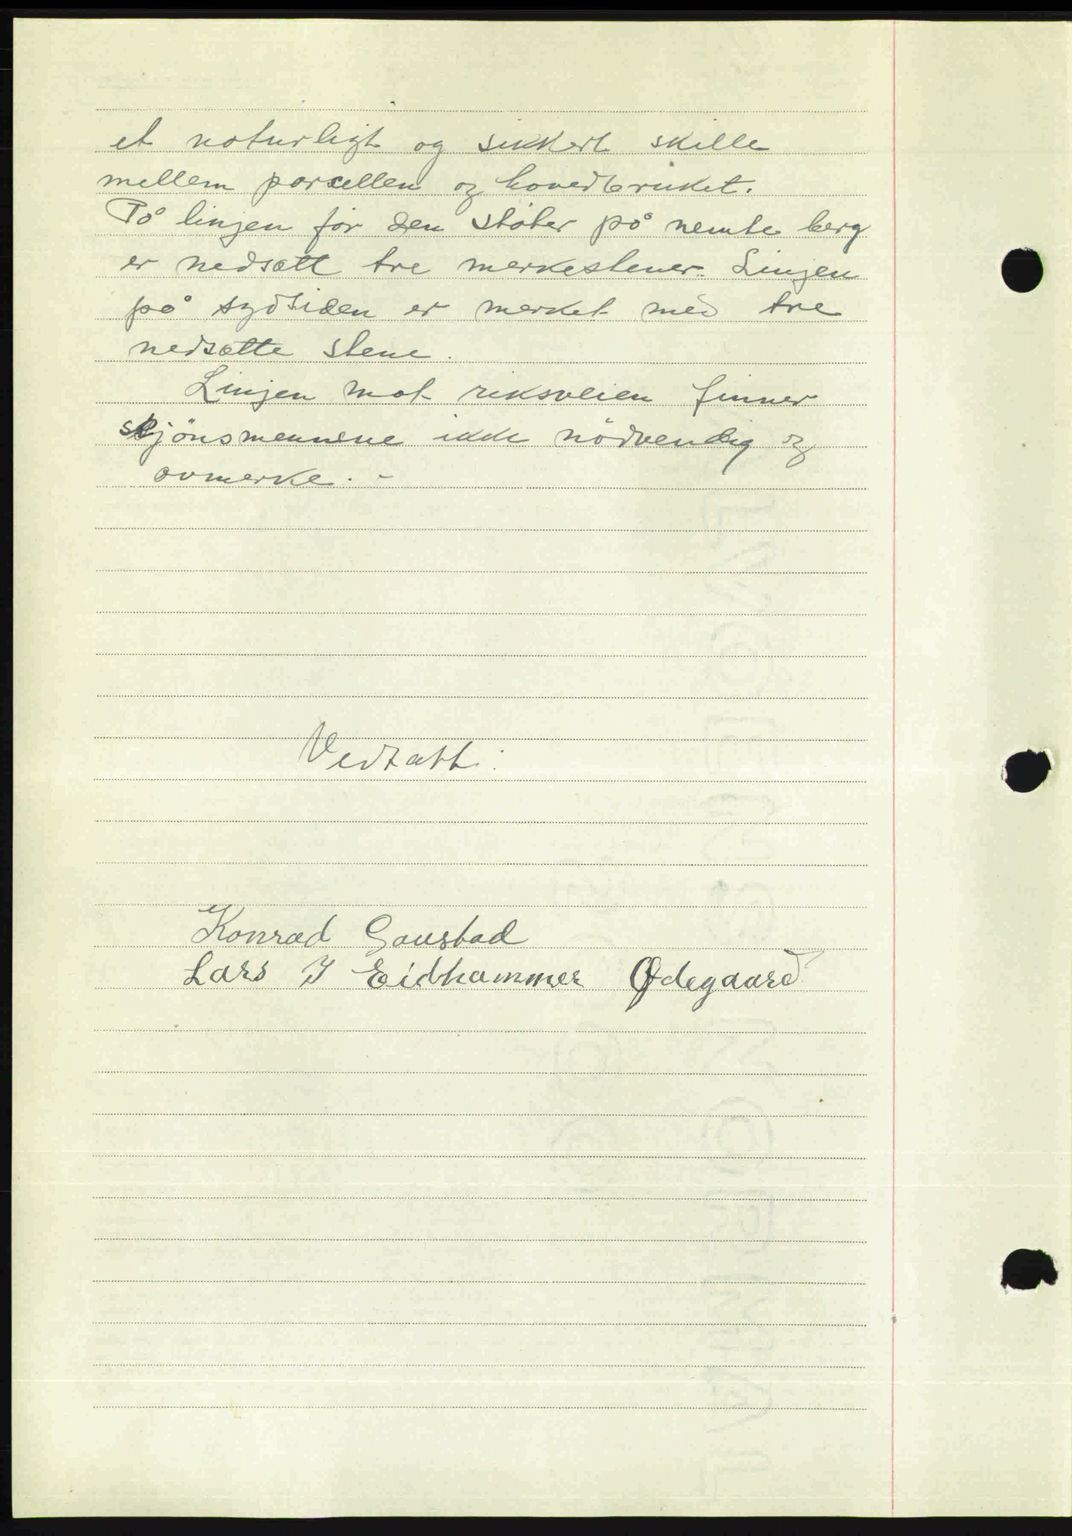 et naturligt og sikkert skille
mellem parcellen og hovedbruket.
På linjen før den støter på nemte berg
er nedsatt tre merkestener. Linjen
på sydsiden er merket med tre
nedsatte stene.
Linjen mot riksveien finner
skjönsmennene ikke nödvendig og
avmerke. -
Vedtatt:
Konrad Gaustad
Lars J Eidhammer Ødegaard